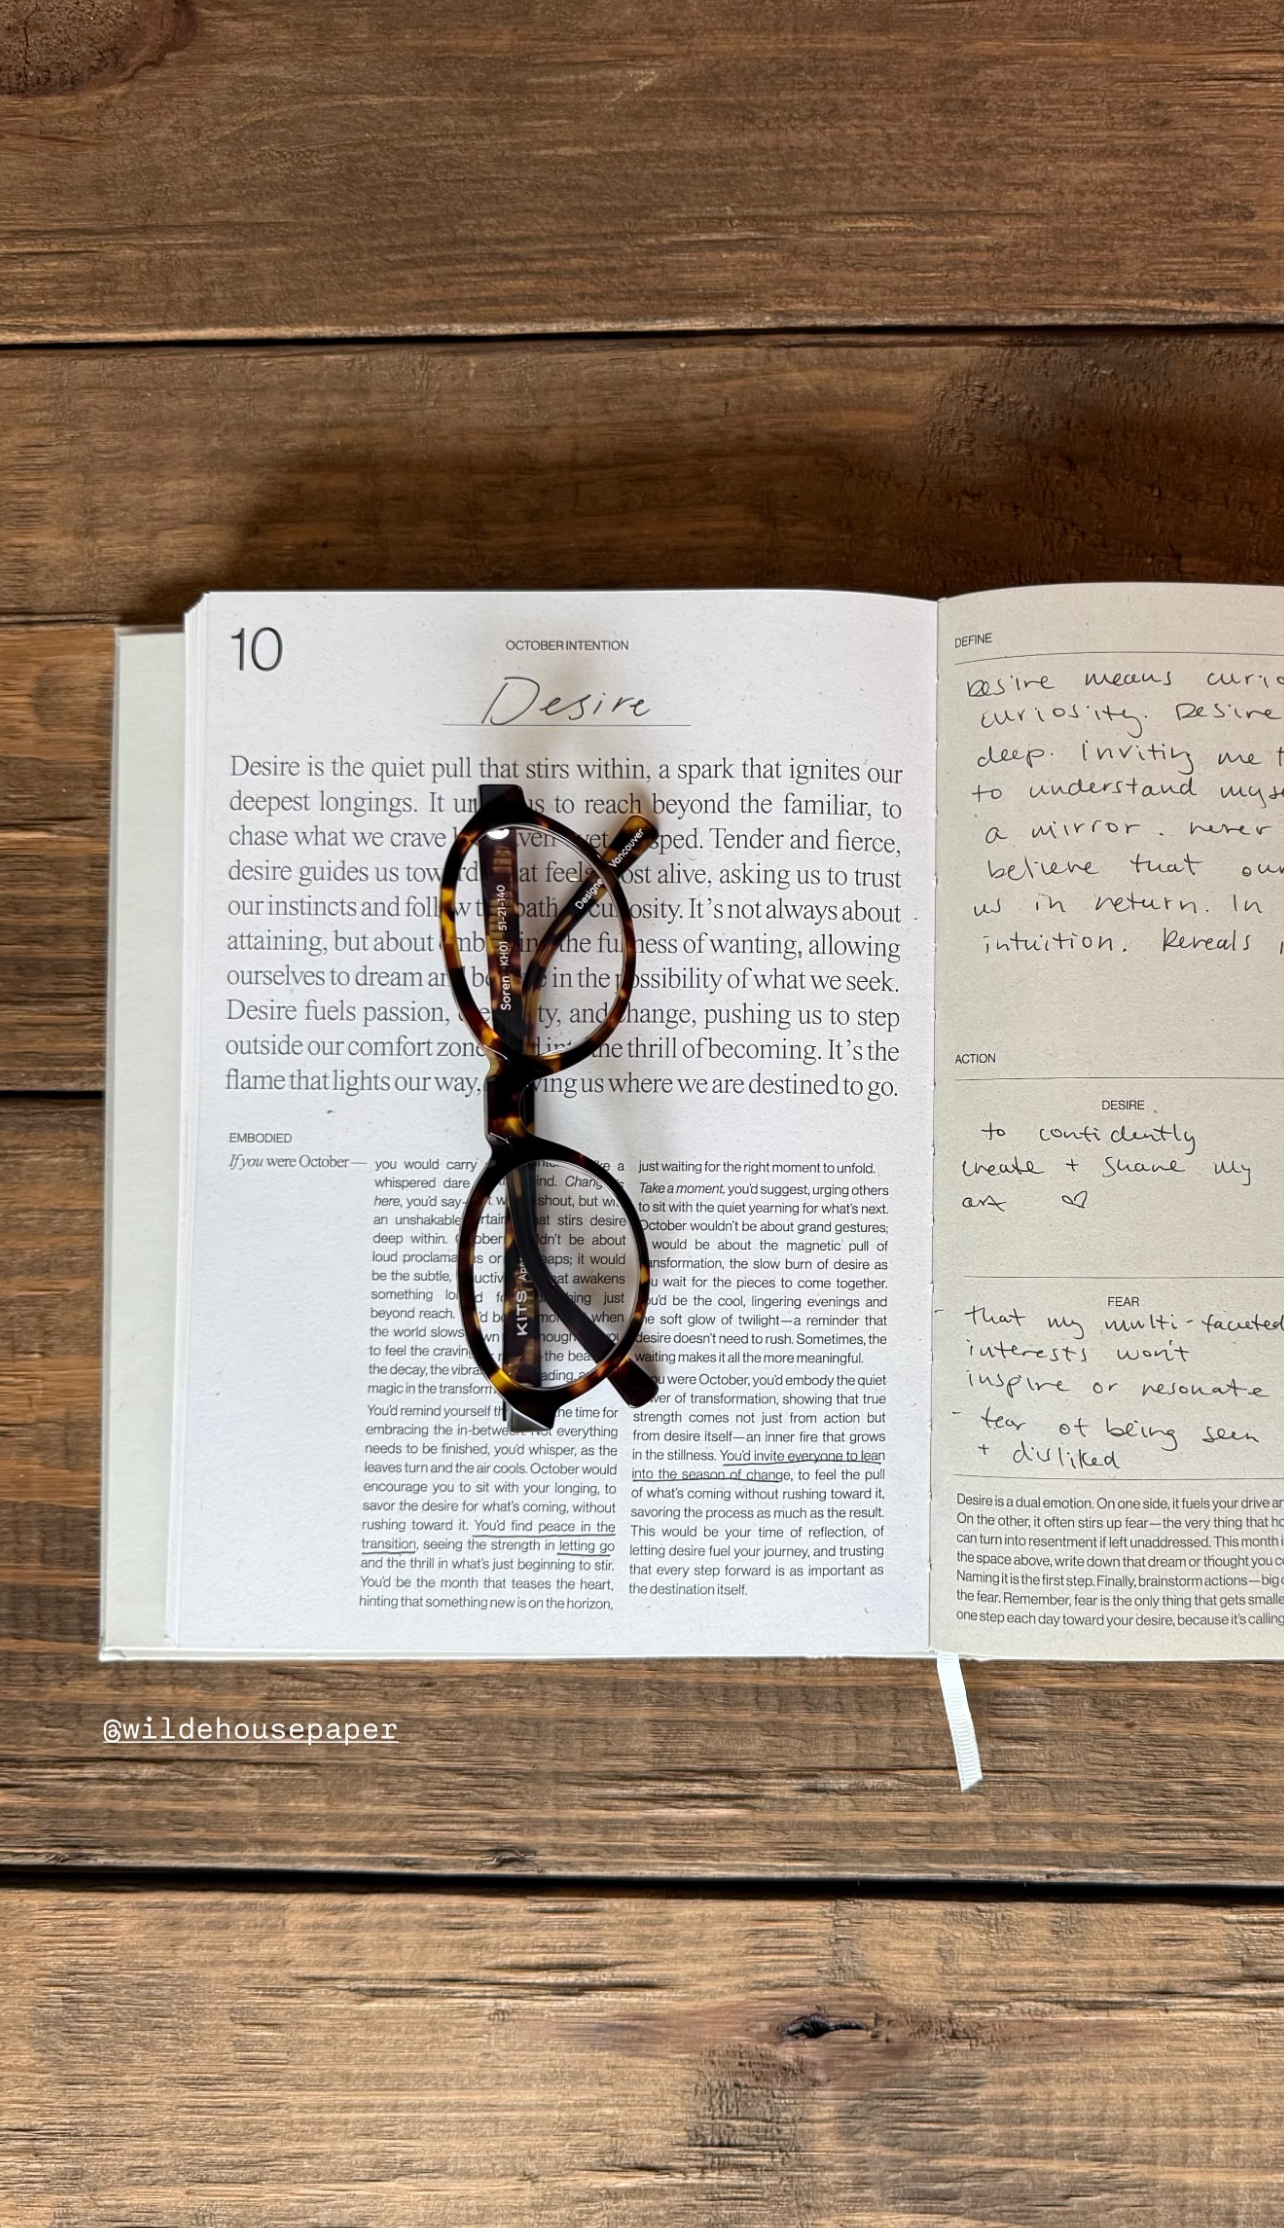 10
OCTOBER INTENTION
Desire
Desire is the quiet pull that stirs within, a spark that ignites our
deepest longings. It us to reach beyond the familiar, to
chase what we crave Tender and fierce,
desire guides us alive, asking us to trust
our instincts and It's not always about
attaining, but about the of wanting, allowing
ourselves to dream in the possibility of what we seek.
Desire fuels passion, and change, pushing us to step
outside our comfort the thrill of becoming. It's the
flame that lights our way, us where we are destined to go.
Soren KH01 51-21-140
Vancouver
KITS
EMBODIED
If you were October—
you would carry a
whispered dare
here, you'd say- shout, but
an unshakable stirs desire
deep within. be about
loud it would
be the subtle, awakens
something just
beyond reach. when
the world slows
to feel the
the decay, the
magic in the
You'd remind yourself the time for
embracing the everything
needs to be finished, you'd whisper, as the
leaves turn and the air cools. October would
encourage you to sit with your longing, to
savor the desire for what's coming, without
rushing toward it. You'd find peace in the
transition, seeing the strength in letting go
and the thrill in what's just beginning to stir.
You'd be the month that teases the heart,
hinting that something new is on the horizon,
just waiting for the right moment to unfold.
Take a moment, you'd suggest, urging others
to sit with the quiet yearning for what's next.
October wouldn't be about grand gestures;
would be about the magnetic pull of
the slow burn of desire as
wait for the pieces to come together.
be the cool, lingering evenings and
soft glow of twilight—a reminder that
desire doesn't need to rush. Sometimes, the
waiting makes it all the more meaningful.
you were October, you'd embody the quiet
of transformation, showing that true
strength comes not just from action but
from desire itself—an inner fire that grows
in the stillness. You'd invite everyone to lean
into the season of change, to feel the pull
of what's coming without rushing toward it,
savoring the process as much as the result.
This would be your time of reflection, of
letting desire fuel your journey, and trusting
that every step forward is as important as
the destination itself.
DEFINE
Desire means
curiosity. Desire
deep. Inviting me
to understand
a mirror. never
believe that
us in return. In
intuition. Reveals
ACTION
DESIRE
to confidently
create + share my
art ♡
FEAR
- that my multi-faceted
interests won't
inspire or resonate
- fear of being seen
+ disliked
Desire is a dual emotion. On one side, it fuels your drive
On the other, it often stirs up fear—the very thing that
can turn into resentment if left unaddressed. This month
the space above, write down that dream or thought you
Naming it is the first step. Finally, brainstorm actions—big
the fear. Remember, fear is the only thing that gets
one step each day toward your desire, because it's calling
@wildehousepaper